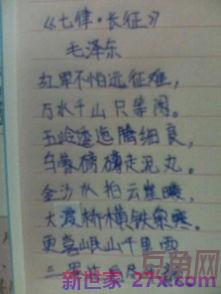 《七律·长征》
毛泽东
红军不怕远征难,
万水千山只等闲。
五岭逶迤腾细良,
乌蒙磅礴走泥丸。
金沙水拍云崖暖,
大渡桥横铁索寒。
更喜岷山千里雪
三军
豆角网
新世界 27x.com